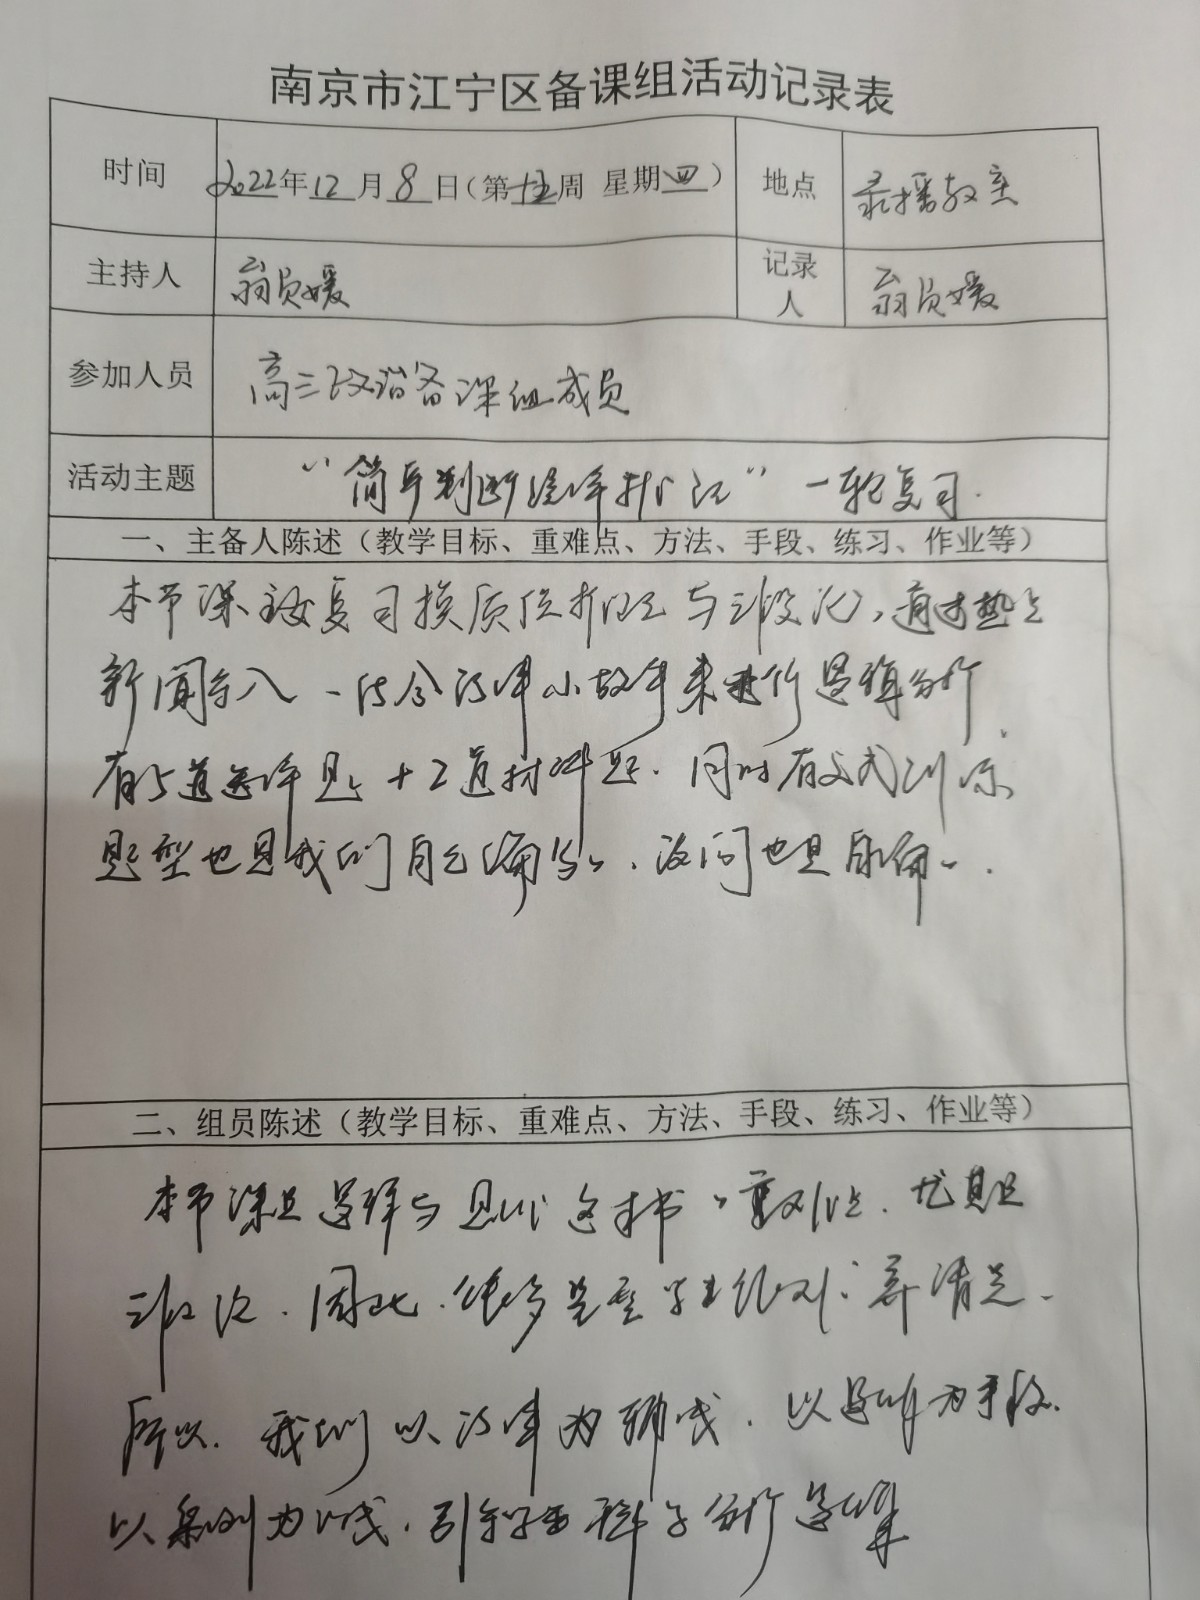 南京市江宁区备课组活动记录表
时间 2022年12月8日(第十五周 星期四) 地点 录播教室
主持人 翁员媛 记录人 翁员媛
参加人员 高三政治备课组成员
活动主题 “简单判断演绎推理” 一轮复习.
一、主备人陈述（教学目标、重难点、方法、手段、练习、作业等）
本节课主要复习换质位推理与三段论,通过热点
新闻导入,结合法律小故事来进行逻辑分析
有5道选择题+2道材料题.同时有变式训练
题型也是我们自己编写,设问也是自编.
二、组员陈述（教学目标、重难点、方法、手段、练习、作业等）
本节课是逻辑与思维这本书重难点.尤其是
三段论.因此,很多学生很难弄清楚.
所以.我们以法律为辅线.以逻辑为手段.
以案例为线.引导学生科学分析逻辑